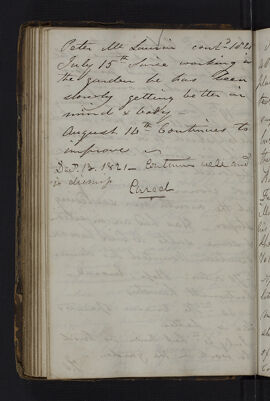 Peter Mc Laurin cont.d 1821
July 15th Since working in
the garden he has been
slowly getting better in
mind & body –
August 14th Continues to
improve
Dec. 13. 1821 – Continues well and
is dismisd
Cured